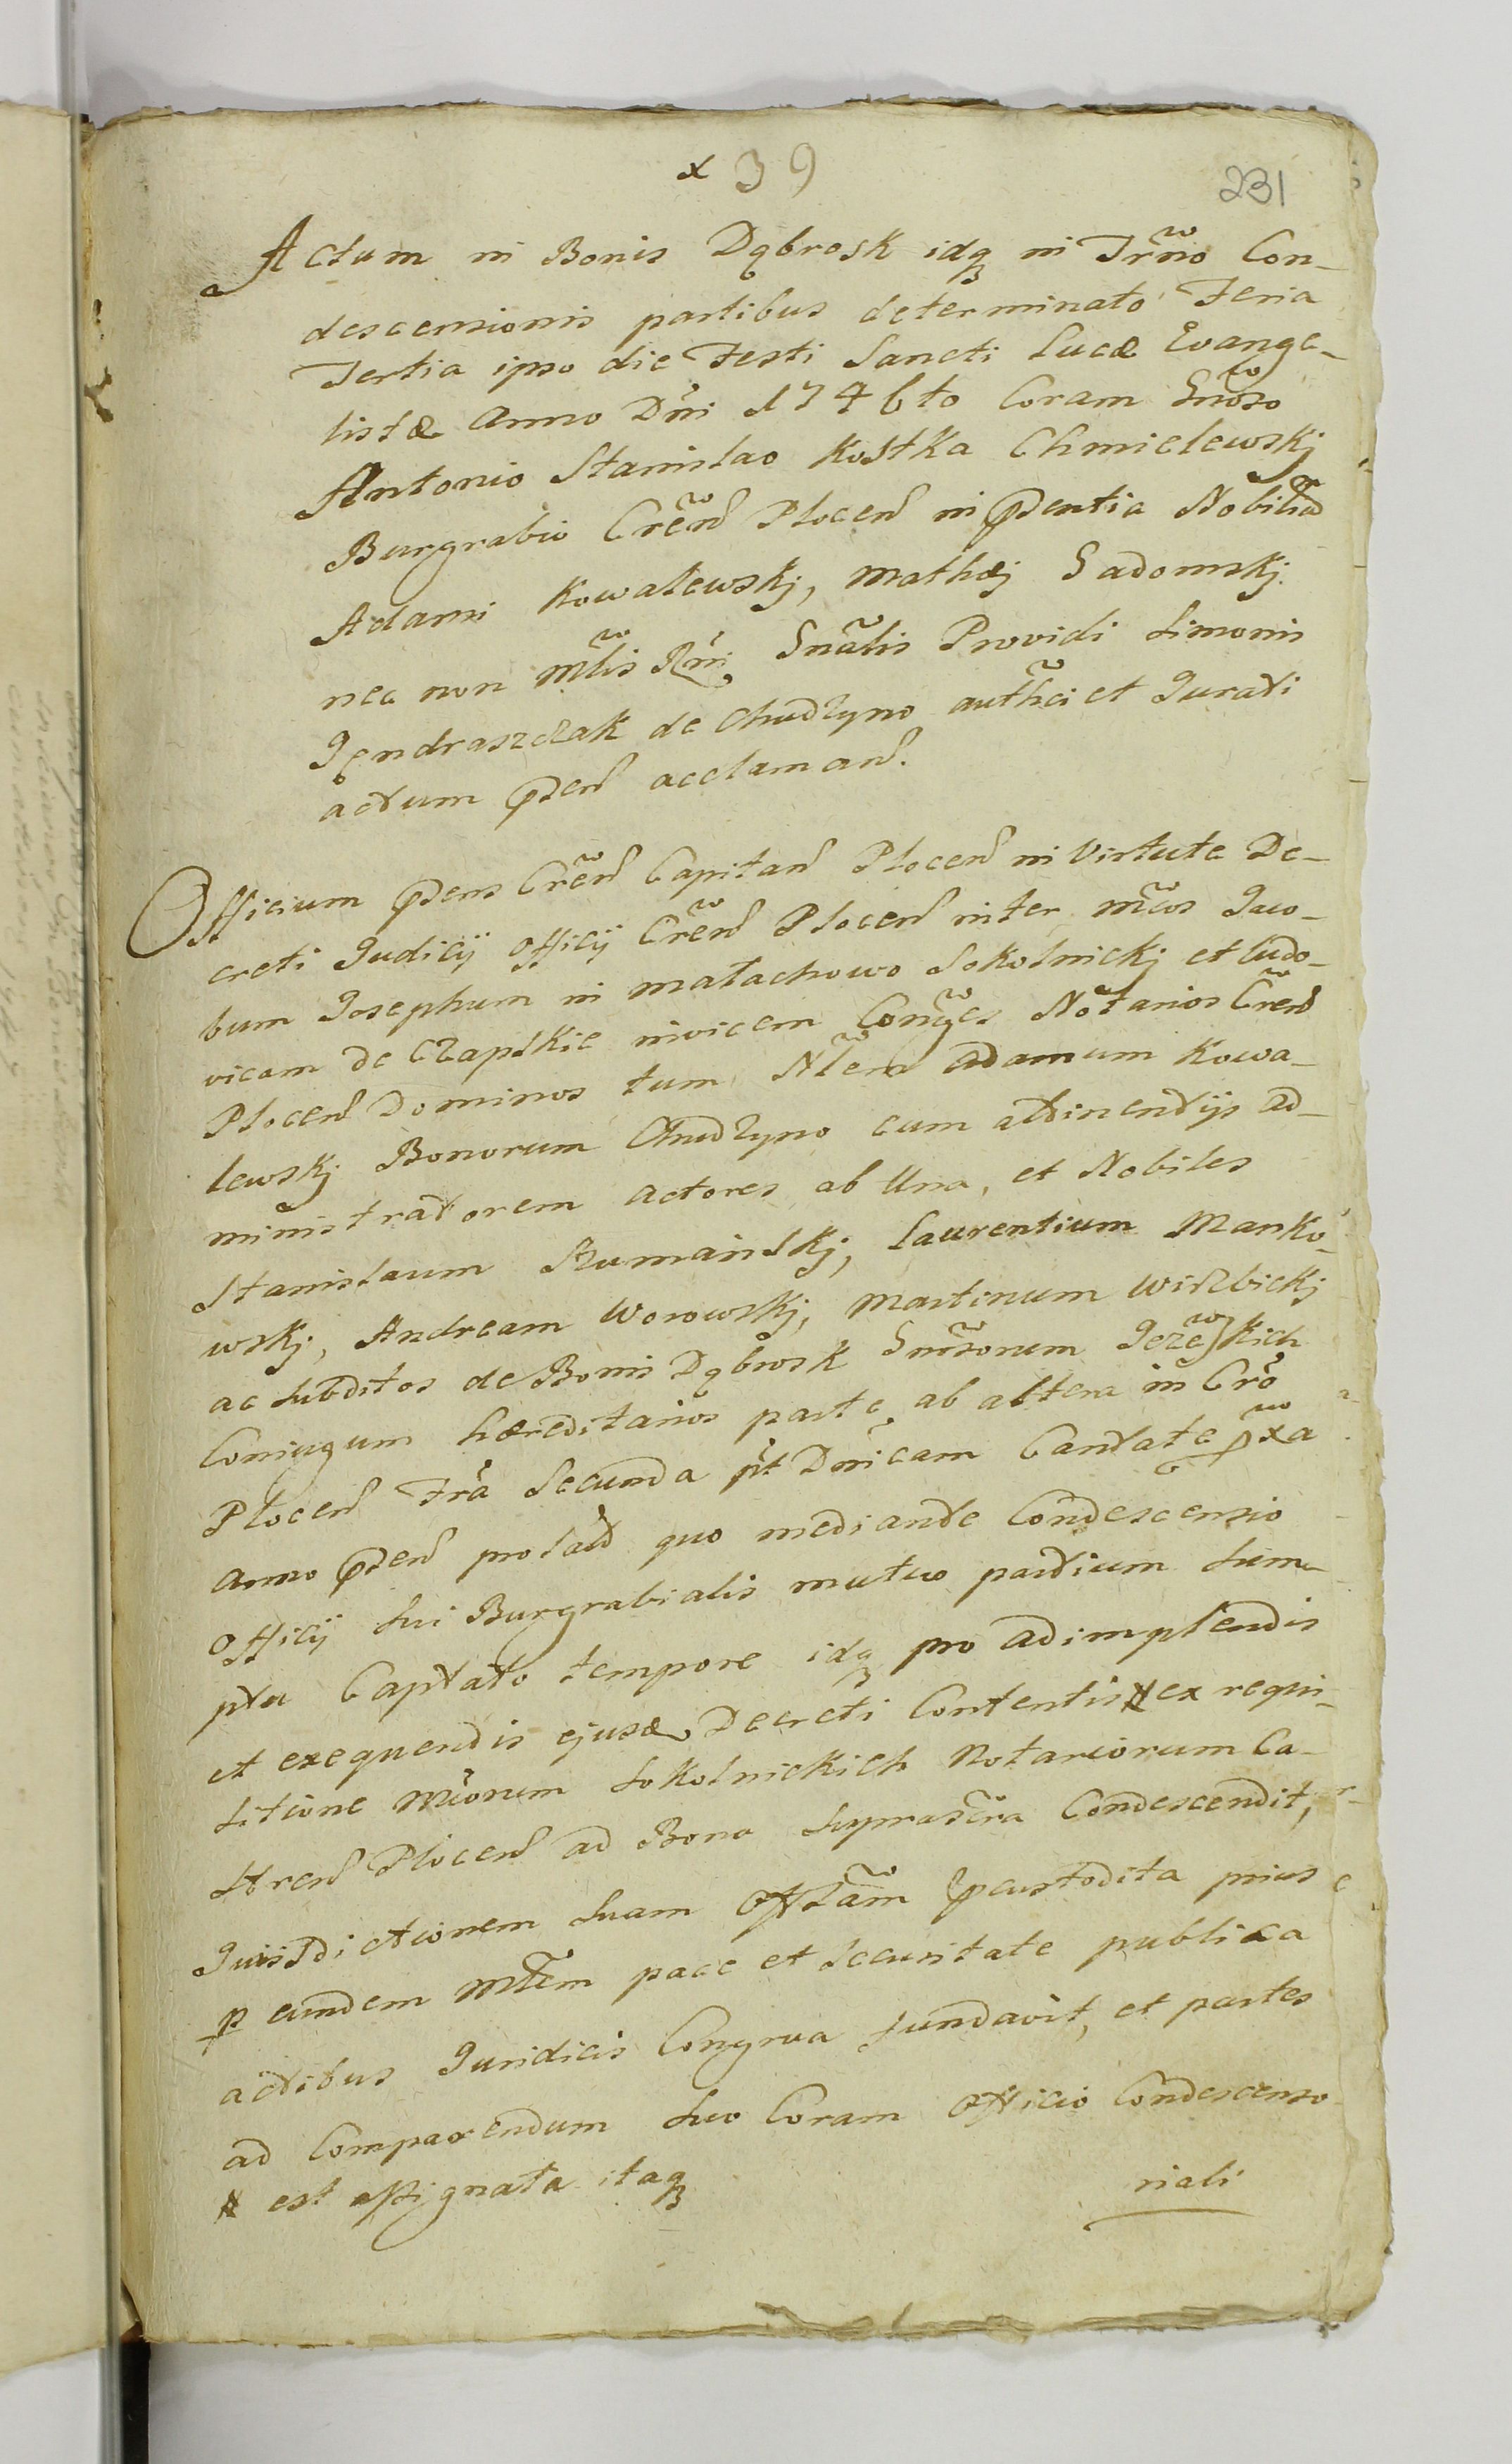 x 39
231
Actum in Bonis Dąbrosk idq in Trno Con-
descensionis partibus determinato Feria
Tertia ipso die Festi Sancti Lucæ Evange-
listæ Anno Dni 1746to Coram Gnoso
Antonio Stanislao Kostka Chmielewskj
Burgrabio Cren Plocen in pñentia Nobiliū
Adami Kowalewskj, Mathæj Sadomskj
nec non Mlis Rni Gnalis Providi Simonis
Jendraszczak de Chudzyno authci et Jurati
actum pñten acclaman.
Officium pñens Cren Capitan Plocen in Virtute De-
creti Judicij Officij Cren Plocen inter Mcos Jaco-
bum Josephum in Małachowo Sokolnickj et Ludo-
vicam de Czapskie invicem Conges Notarios Cren
Plocen Dominos tum Nlem Adamum Kowa-
lewskj Bonorum Chudzyno cum attinentijs ad-
ministratorem Actores ab Una, et Nobiles
Stanislaum Rumainskj, Laurentium Manko-
wskj, Andream Worowskj, Martinum Wirzbickj
ac Subditos de Bonis Dąbrosk Gnosorum Jeżewskich
Coniugum hæreditarios parte ab altera in Cro
Plocen Fra Secunda pt Dnicam Cantate pxa
Anno pñten prolat quo mediante Condescensio
Officij Sui Burgrabialis mutuo partium Sum-
ptu Captato tempore idq pro adimplendis
et exequendis ejusd Decreti Contentis # ex requi-
sitione Mcorum Sokolnickich Notariorum Ca-
stren Plocen ad Bona Suprascra Condescendit,
Jurisdictionem Suam Offlam pcustodita prius
p eundem Mlem pace et Securitate publica
actibus Juridicis Congrua fundavit, et partes
ad Comparendum Suo Coram Officio Condescenso-
# est assignata itaq
riali